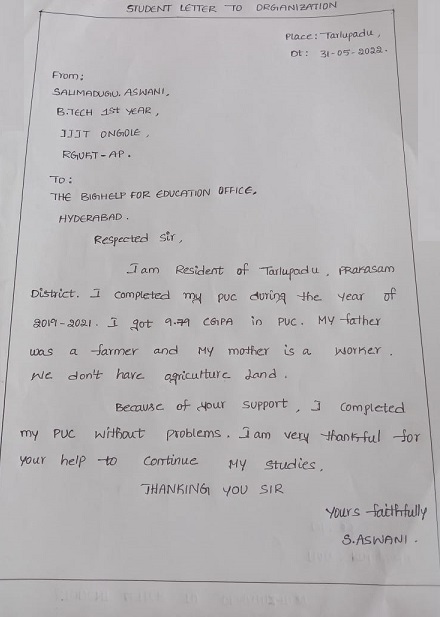 STUDENT LETTER TO ORGIANIZATION
Place: Tarlupadu,
Dt: 31-05-2022.
From:
SALIMADUGU. ASWANI,
B.TECH 1st YEAR,
IIIT ONGOLE,
RGUKT-AP.
To:
THE BIGHELP FOR EDUCATION OFFICE,
HYDERABAD.
Respected Sir,
I am Resident of Tarlupadu, Prakasam
District. I completed my puc during the year of
2019-2021. I got 9.79 CGPA in PUC. MY father
was a farmer and My mother is a worker.
We don't have agriculture land.
Because of your support, I completed
my PUC without problems. I am very thankful for
your help to continue My studies,
THANKING YOU SIR
Yours faithfully
S.ASWANI.